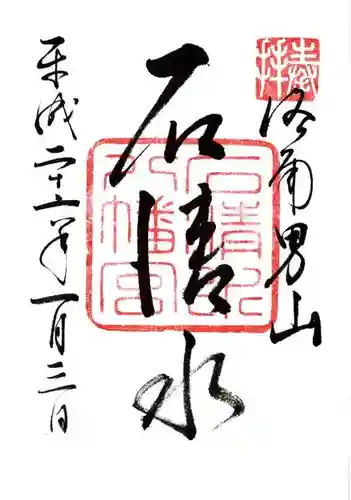 奉拝
洛南男山
石清水
石清水八幡宮
平成二十一年一月三日